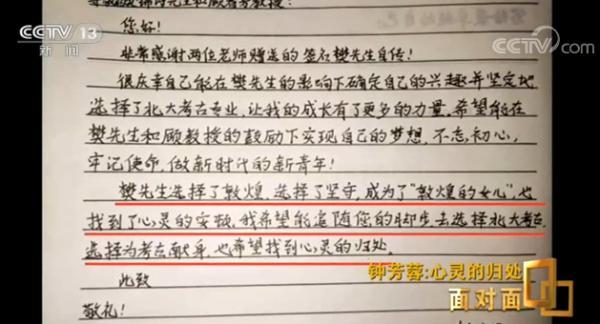 CCTV 13
新闻
央视网
cctv.com
您好！
非常感谢两位老师赠送的签名樊先生自传！
很庆幸自己能在樊先生的影响下确定自己的兴趣并坚定地
选择了北大考古专业，让我的成长有了更多的力量，希望能在
樊先生和顾教授的鼓励下实现自己的梦想，不忘初心，
牢记使命，做新时代的新青年！
樊先生选择了敦煌，选择了坚守，成为了“敦煌的女儿”，也
找到了心灵的安顿，我希望能追随您的脚步去选择北大考古，
选择为考古献身，也希望找到心灵的归处。
此致
敬礼！
钟芳蓉:心灵的归处
面对面